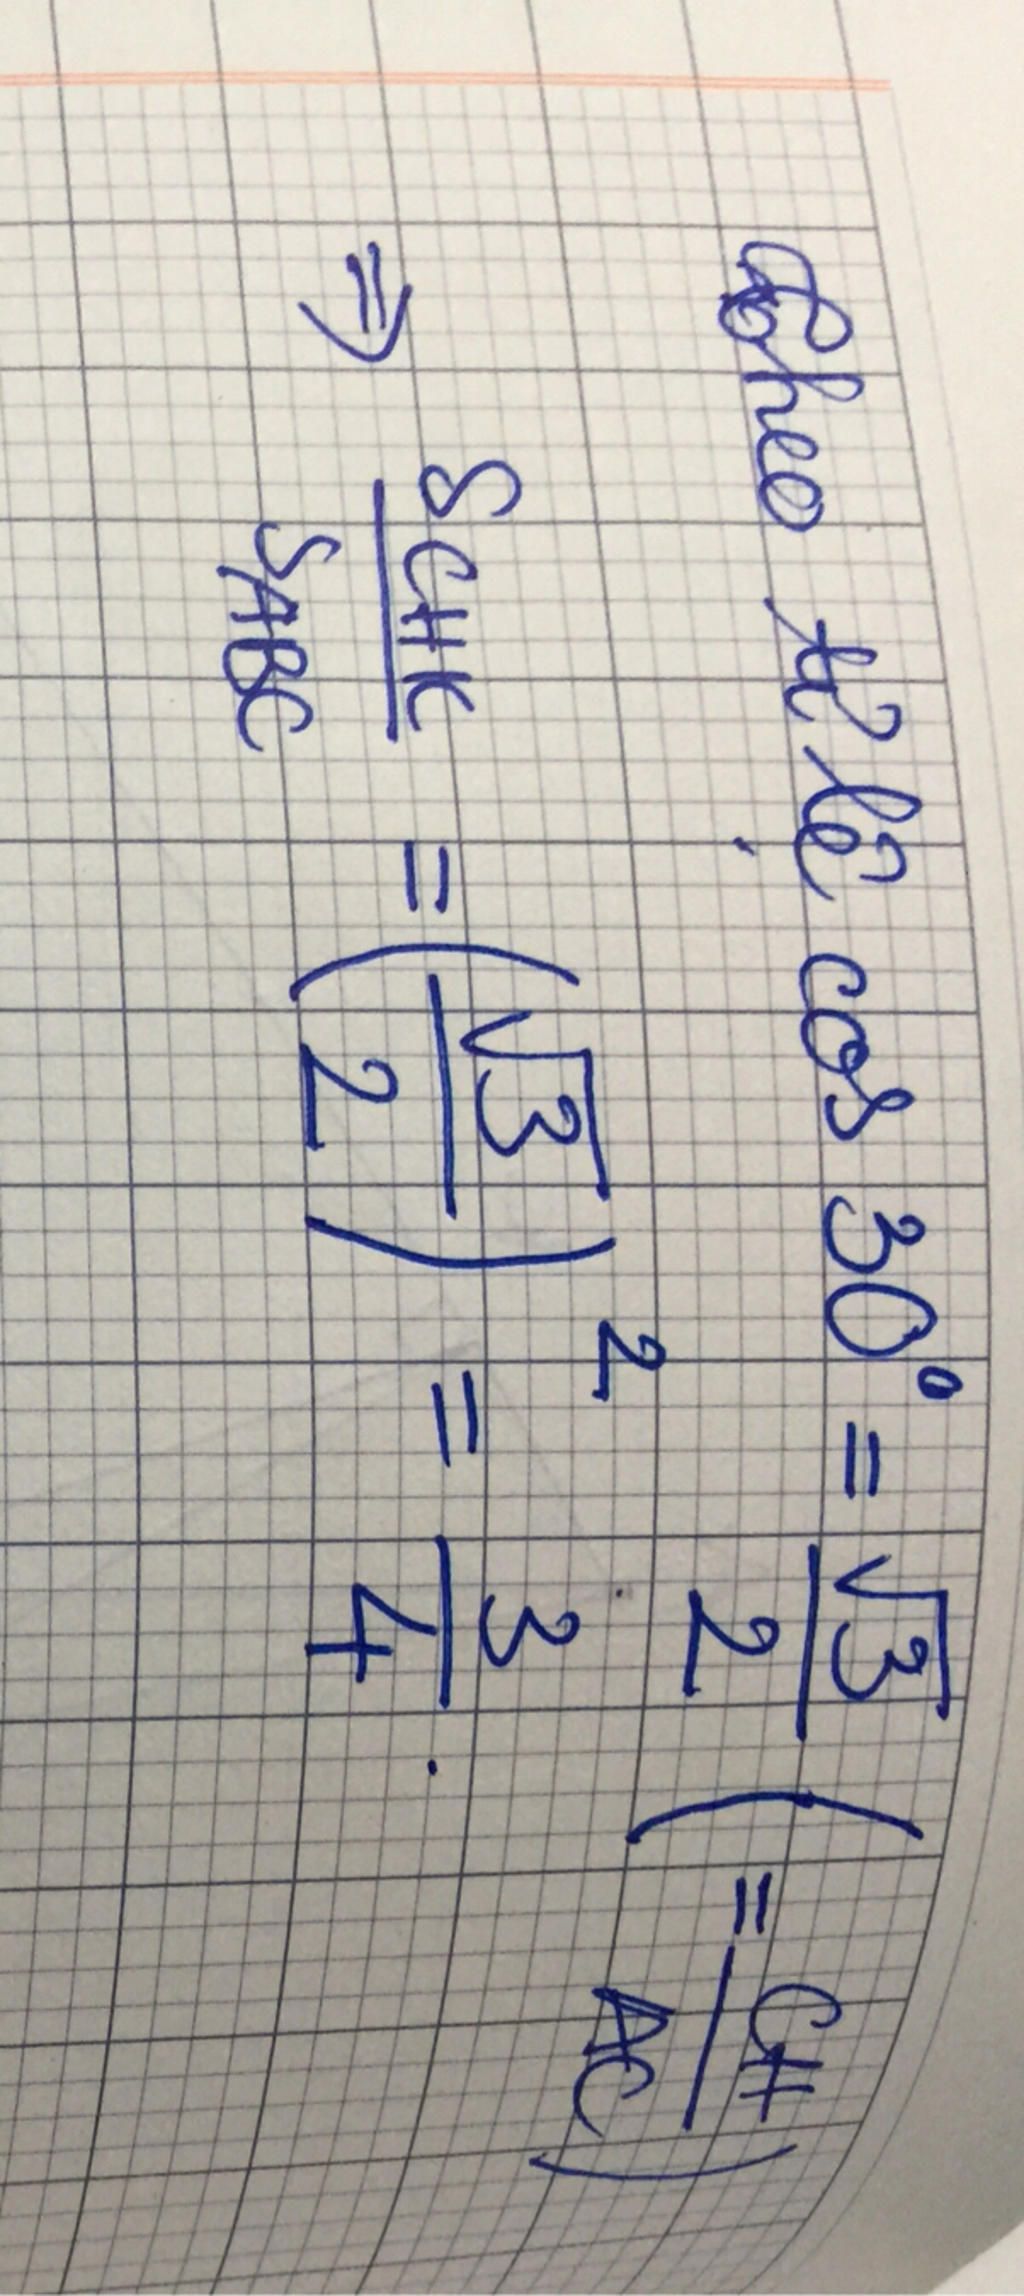 Theo tỉ lệ cos 30° = √3/2 (= CH/AC)
⇒ S CHK / S ABC = (√3/2)² = 3/4.